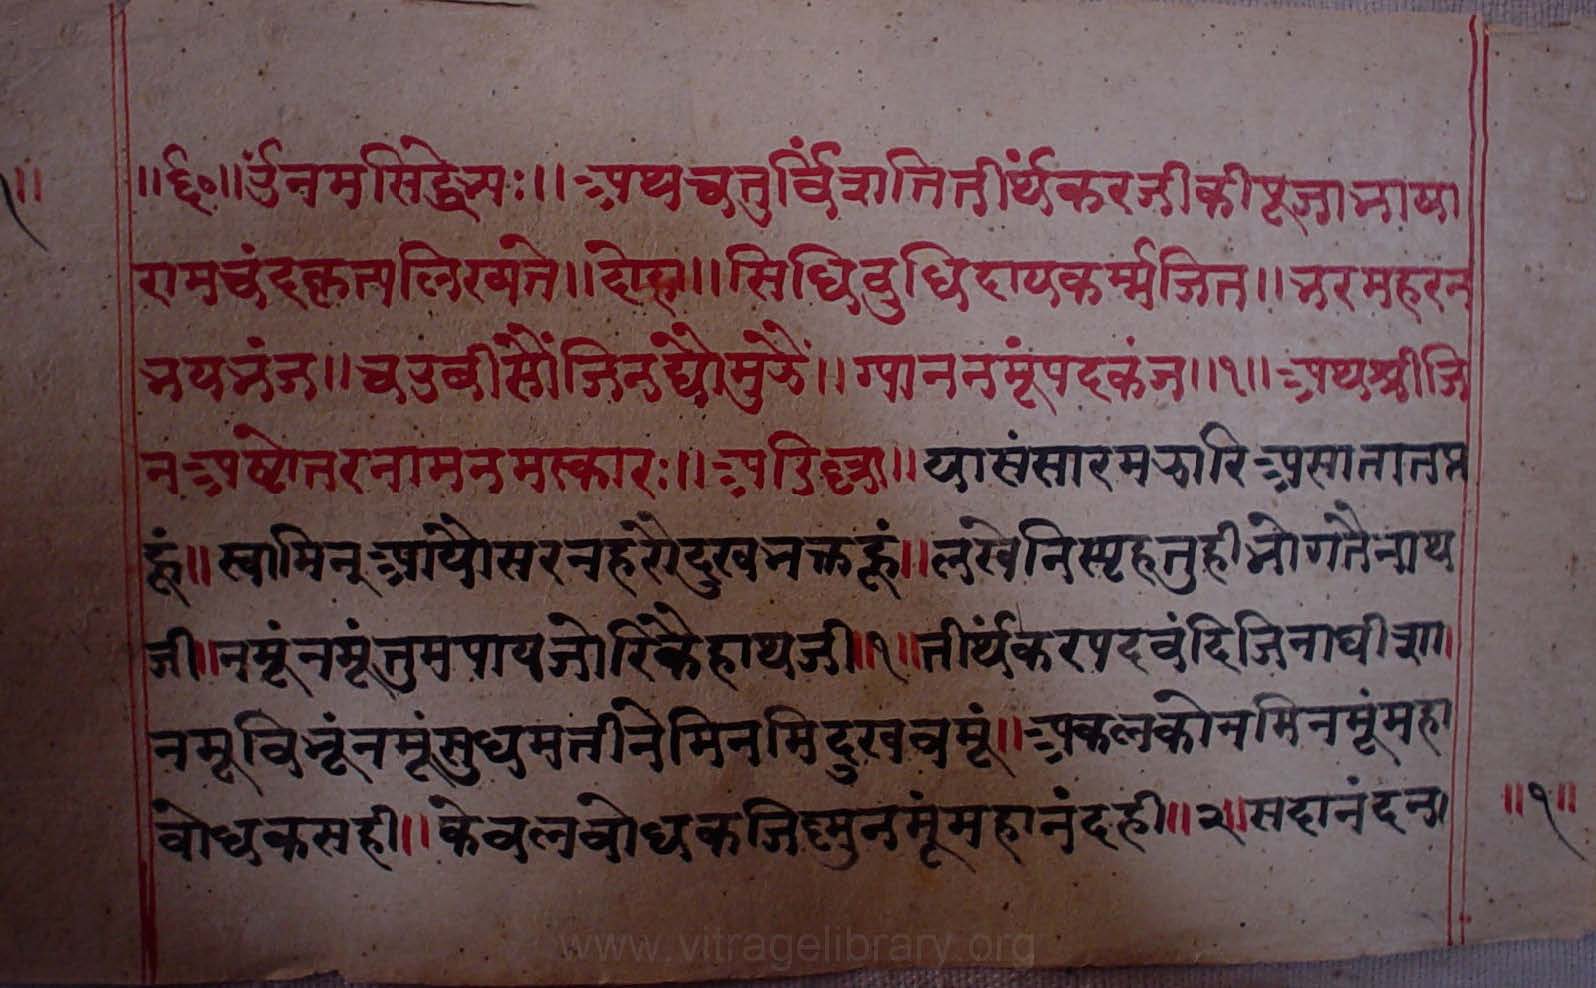 ॥६०॥ ॐ नमसिद्धेभ्यः॥ अथ चतुर्विंशति तीर्थंकरजी की पूजा भाषा
रामचंद्र कृत्य लिख्यते॥ दोहा॥ सिधि बुधि दायक कर्म्मजित॥ भरमहरन
भयभंज॥ चउबीसौं जिन द्यौ मुझैं॥ ग्यान नमूं पदकंज॥१॥ अथ श्री जि
न अष्टोत्तर नाम नमस्कारः॥ अडिल्ल॥ या संसार मझारि असाता तप्त
हूं॥ स्वामिन् आयौ सरन हरौ दुख भक्त हूं॥ लखे निस्पृह तुही भोग तै नाथ
जी॥ नमूं नमूं तुम पाय जोरिकै हाथ जी॥१॥ तीर्थंकर पद वंदि जिनाधीशा
नमू विभूं नमूं सुधमती नेमि नमि दुख वमूं॥ अकलको नमि नमूं महा
बोधक सही॥ केवल बोधक जिष्मु नमूं महानंद ही॥२॥ सदानंदन
॥१॥
www.vitragelibrary.org